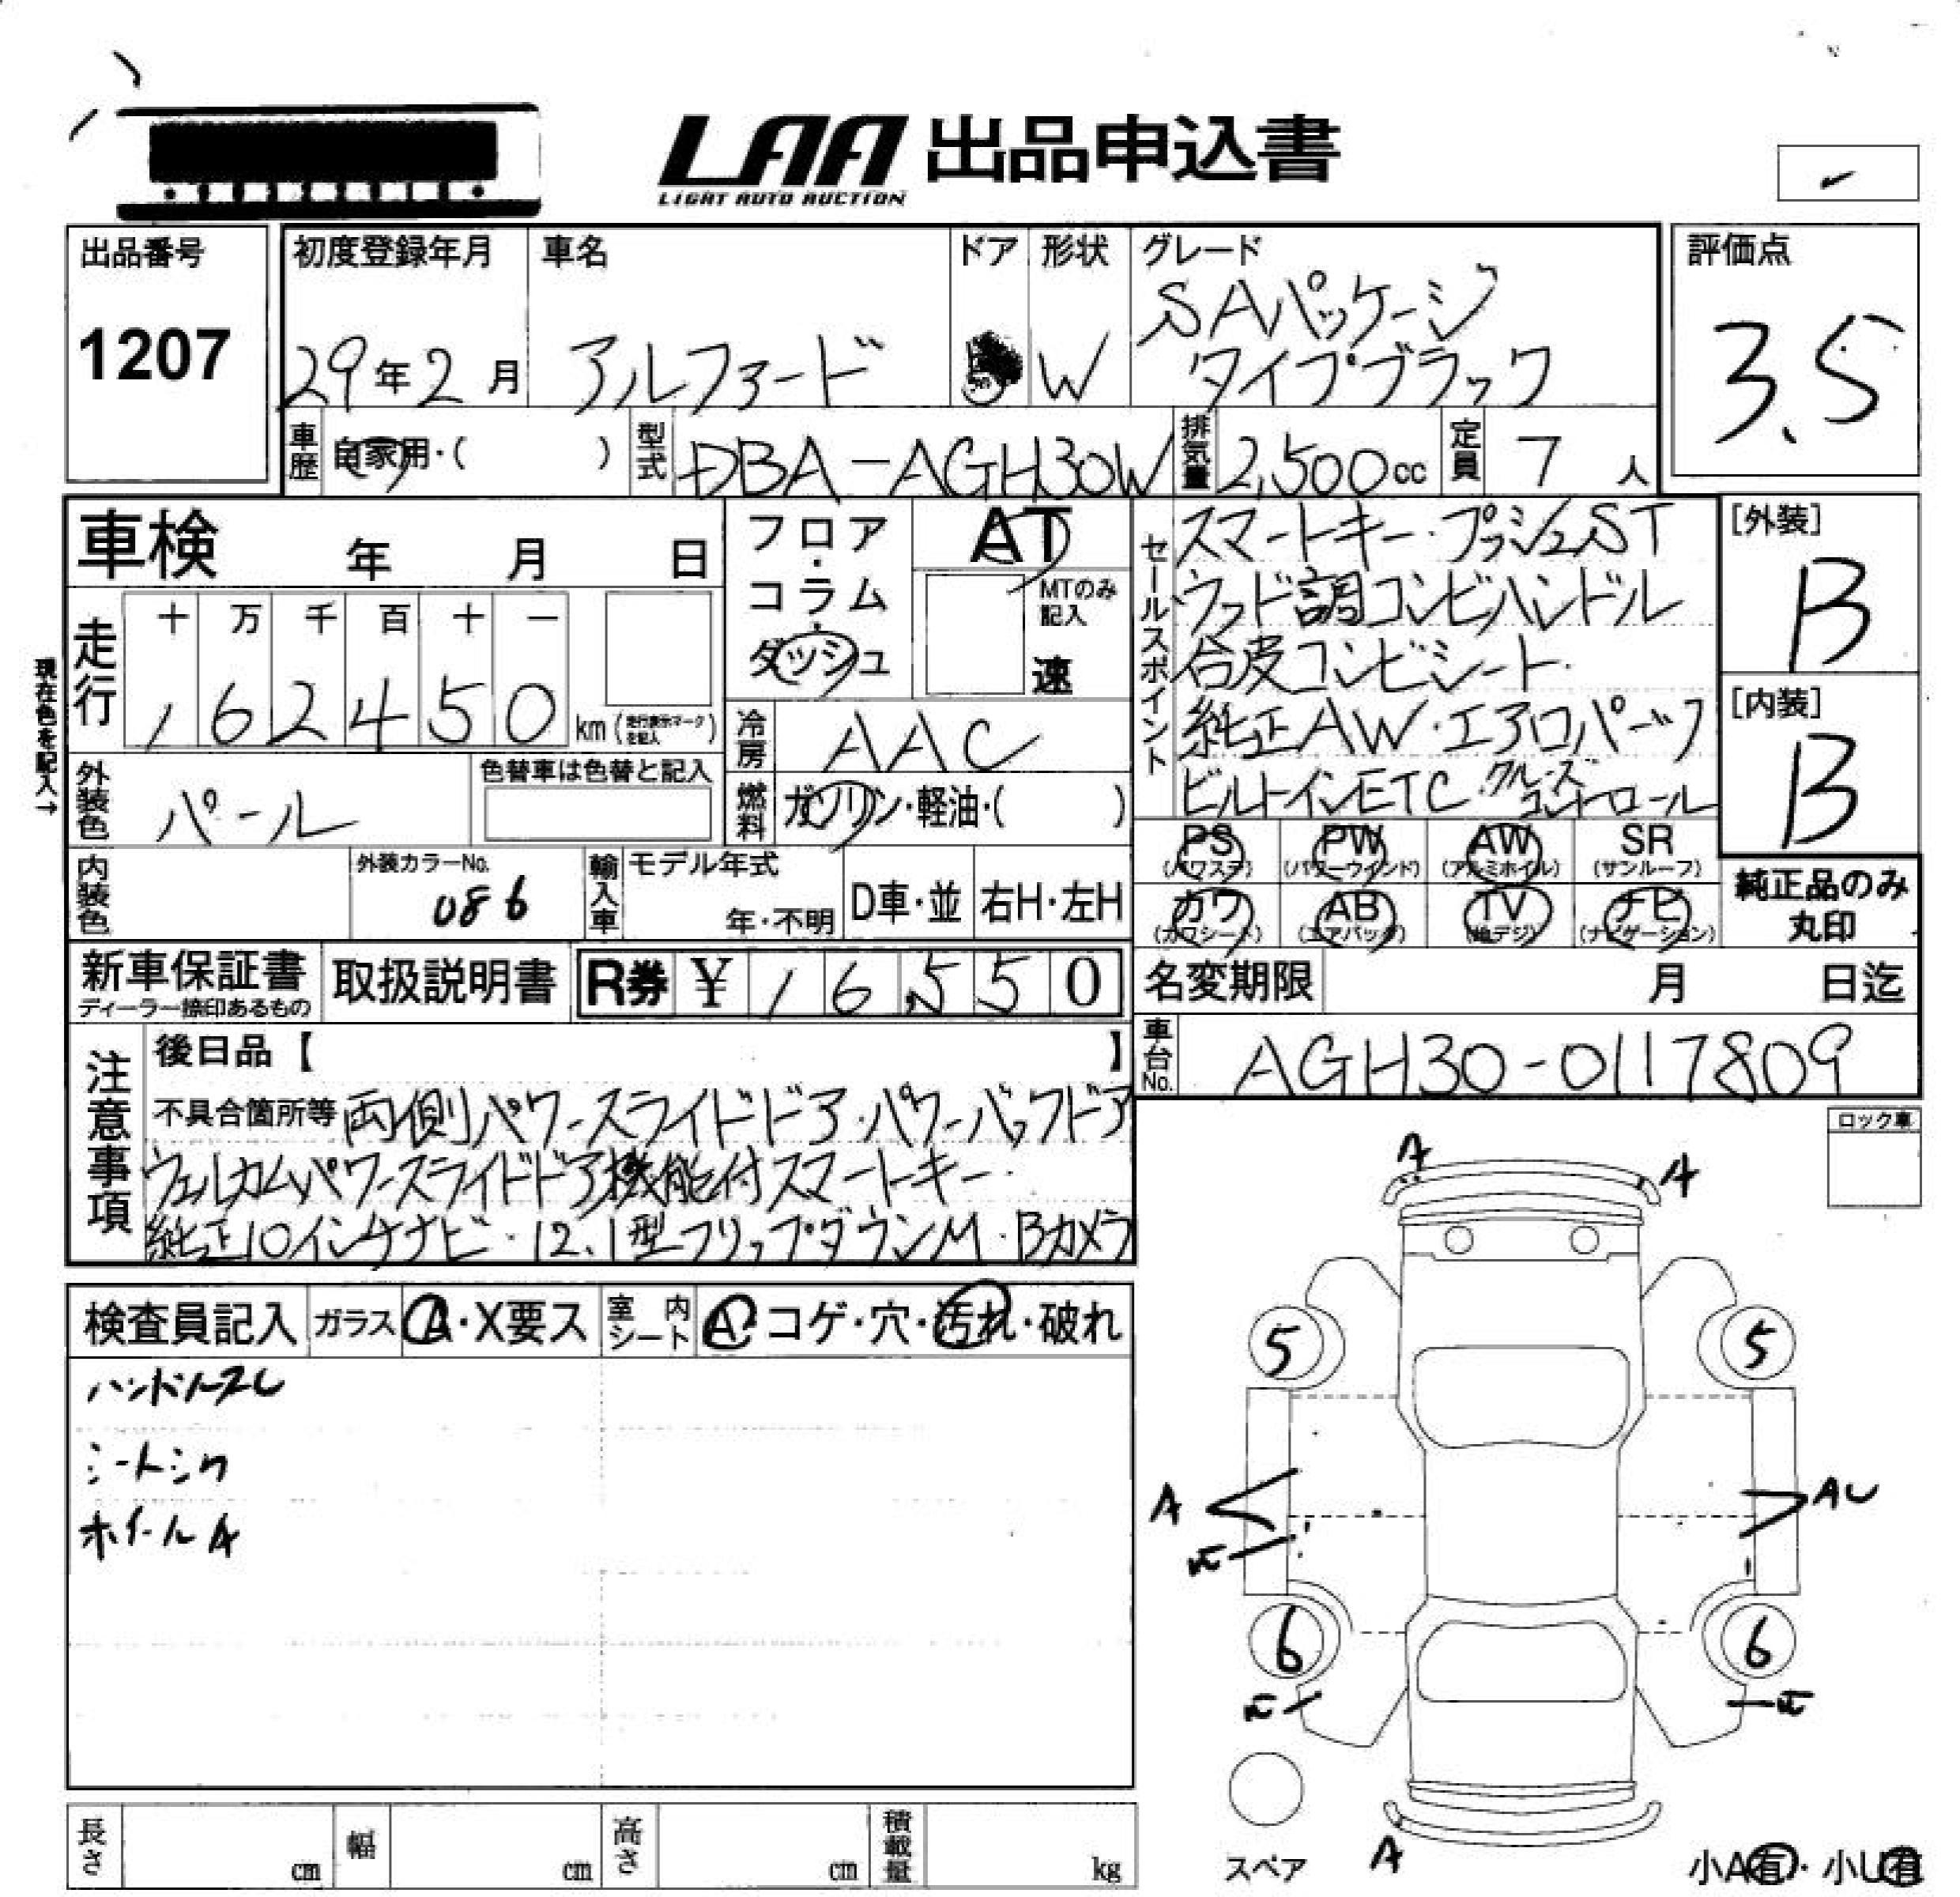 LAA 出品申込書
LIGHT AUTO AUCTION
出品番号
1207
初度登録年月
29年2月
車名
アルファード
ドア
5
形状
W
グレード
SAパッケージ
タイプブラック
評価点
3.5
車歴
自家用・( )
型式
DBA-AGH30W
排気量
2,500cc
定員
7人
車検 年 月 日
フロア・コラム・ダッシュ
AT
MTのみ記入
速
走行
十 万 千 百 十 一
1 6 2 4 5 0 km (走行表示マークを記入)
現在色を記入→
外装色
パール
色替車は色替と記入
冷房
AAC
燃料
ガソリン・軽油・( )
内装色
外装カラーNo.
086
輸入車
モデル年式
年・不明
D車・並
右H・左H
セールスポイント
スマートキー・プッシュST
ウッド調コンビハンドル
合皮コンビシート・
純正AW・エアロパーツ
ビルトインETC・クルーズコントロール
[外装]
B
[内装]
B
PS (パワステ)
PW (パワーウインド)
AW (アルミホイル)
SR (サンルーフ)
カワ (カワシート)
AB (エアバッグ)
TV (地デジ)
ナビ (ナビゲーション)
純正品のみ
丸印
新車保証書
ディーラー捺印あるもの
取扱説明書
R券 ¥ 16,550
名変期限 月 日迄
車台No.
AGH30-0117809
注意事項
後日品【 】
不具合箇所等 両側パワースライドドア・パワーバックドア
ウェルカムパワースライドドア機能付スマートキー・
純正10インチナビ・12.1型フリップダウンM・Bカメラ
ロック車
検査員記入
ガラス
A・X要ス
室内シート
A・コゲ・穴・汚れ・破れ
ハンドルスレ
シートシワ
ホイールA
A
A
5
5
A
AU
6
6
A
スペア
小A有・小U有
長さ cm
幅 cm
高さ cm
積載量 kg